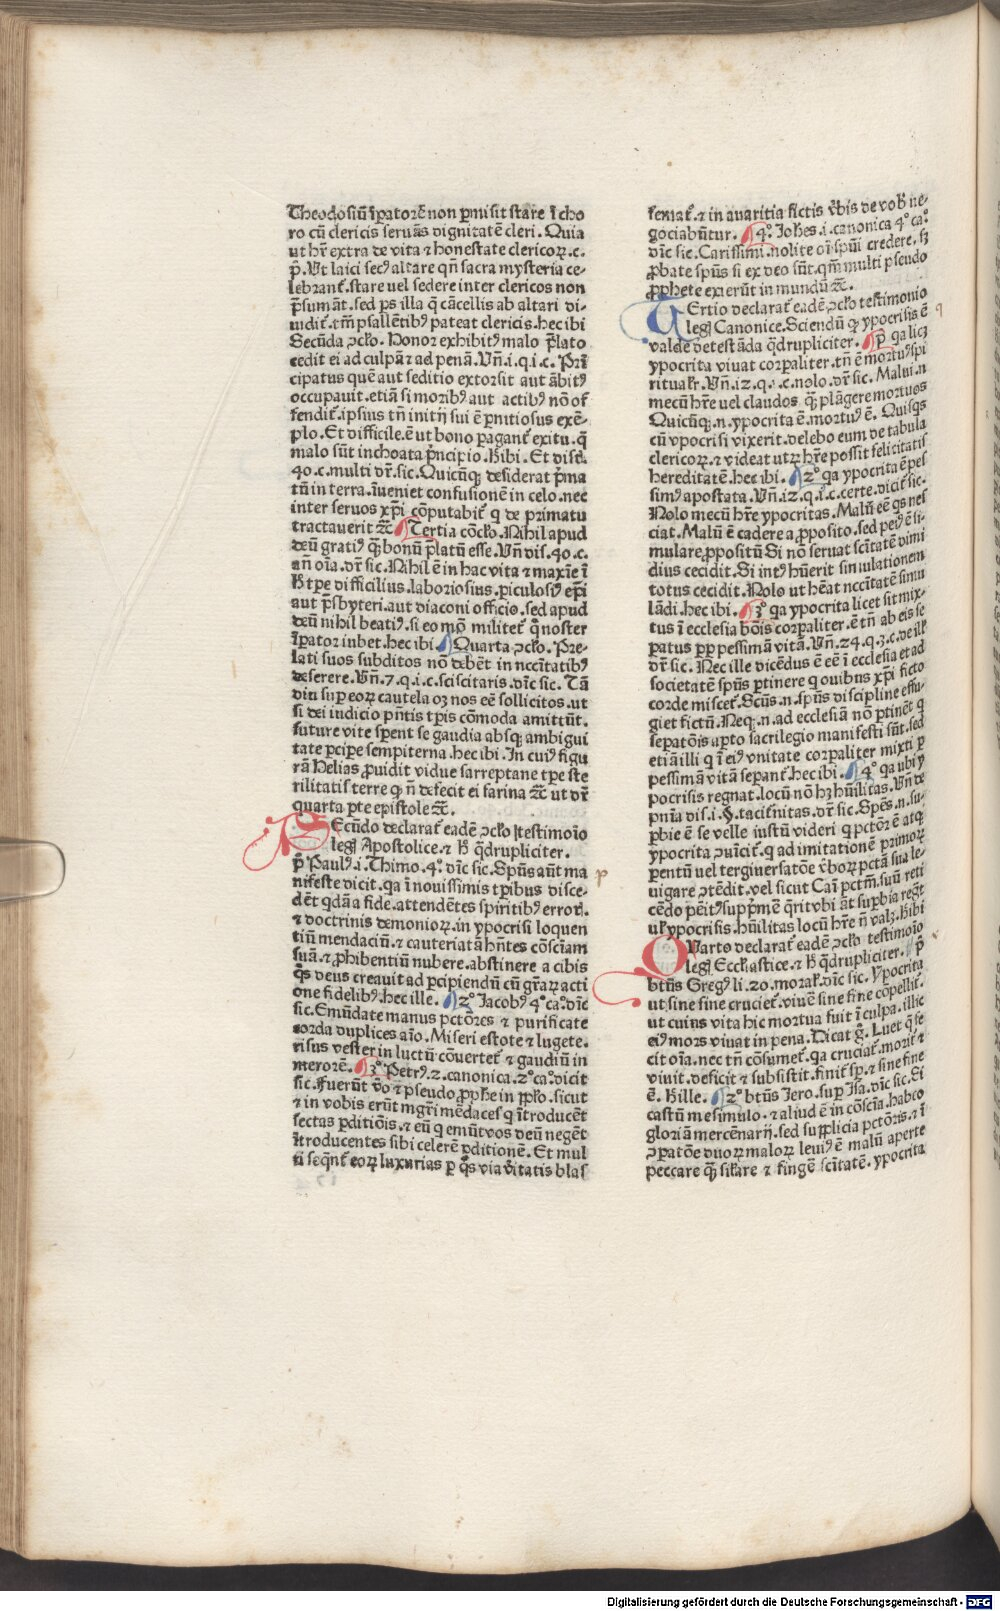 Theodosiū īpatorē non pmisit stare ī cho
ro cū clericis seruās dignitatē cleri. Quia
ut hr̄ extra de vita ⁊ honestate clericoꝝ. c.
p̄. Ut laici secꝰ altare qn̄ sacra mysteria ce-
lebrant᷑. stare uel sedere inter clericos non
p̄sumāt. sed ps illa q̄ cācellis ab altari di-
uidit᷑. tm̄ psallētibꝰ pateat clericis. hec ibi
Secūda ꝯclo. Honor exhibitꝰ malo p̄lato
cedit ei ad culpā ⁊ ad penā. Vn̄. i. q. i. c. Prī
cipatus quē aut seditio extorsit aut ābitꝰ
occupauit. etiā si moribꝰ aut actibꝰ nō of
fendit᷑. ipsius tn̄ initij sui ē pnitiosus exē-
plo. Et difficile. ē ut bono pagant᷑ exitu. q̄
malo sūt inchoata p̄ncipio. H̄ ibi. Et disti.
40. c. multi dr̄. sic. Quicūqꝫ desiderat p̄ma
tū in terra. īueniet confusionē in celo. nec
inter seruos xp̄i cōputabit᷑ q de primatu
tractauerit ⁊c̄ Tertia cōclo. Nihil apud
deū gratiꝰ qꝫ bonū p̄latū esse. Vn̄ dis. 40. c.
an̄ oīa. dr̄ sic. Nihil ē in hac vita ⁊ maxīe ī
h̄ tpe difficilius. laboriosius. piculosiꝰ ep̄i
aut p̄sbyteri. aut diaconi officio. sed apud
deū nihil beatiꝰ. si eo mō militet᷑ q̄ noster
īpator iubet. hec ibi. Quarta ꝯclo. Pre-
lati suos subditos nō debēt in nccītatibꝰ
deserere. Vn̄. 7. q. i. c. sciscitaris. dīc sic. Tā
diu sup eoꝝ cautela oꝫ nos eē sollicitos. ut
si dei iudicio pn̄tis tpis cōmoda amittūt.
future vite spent se gaudia absqꝫ ambigui
tate pcipe sempiterna. hec ibi. In cuiꝰ figu
rā Helias ꝓuidit vidue sarreptane tpe ste
rilitatis terre q n̄ defecit ei farina ⁊c̄ ut dr̄
quarta pte epistole ⁊c̄.
SEcūdo declarat᷑ eadē ꝯclo testimoīo
legꝭ Apostolice. ⁊ h̄ q̄drupliciter.
p̄ Paulꝰ. i. Thimo. 4°. dīc sic. Spūs aūt ma
nifeste dicit. qa ī nouissimis tpibus disce-
dēt qdā a fide. attendētes spiritibꝰ erroꝝ.
⁊ doctrinis demonioꝝ. in ypocrisi loquen
tiū mendaciū. ⁊ cauteriatā hn̄tes cōsciam
suā. ⁊ ꝓhibentiū nubere. abstinere a cibis
q̄s deus creauit ad pcipiendū cū gr̄aꝝ acti
one fidelibꝰ. hec ille. 2° Jacobꝰ 4° ca°. dīc
sic. Emūdate manus pctōres ⁊ purificate
corda duplices aīo. Miseri estote ⁊ lugete.
risus vester in luctū cōuertet᷑ ⁊ gaudiū in
merorē. 3° Petrꝰ. 2. canonica. 2° ca°. dicit
sic. Fuerūt v̄o ⁊ pseudo ꝓphe in pplo. sicut
⁊ in vobis erūt mgr̄i mēdaces q ītroducēt
sectas pditiōis. ⁊ eū q emit vos deū negēt
ītroducentes sibi celerē pditionē. Et mul
ti seqn̄t᷑ eoꝝ luxurias p q̄s via v̄itatis blas
femat᷑. ⁊ in auaritia fictis v̄bis de vob̄ ne-
gociabūtur. 4°. Johes. i. canonica 4° ca°.
dīc sic. Carissimi. nolite oī spūi credere. sꝫ
ꝓbate spūs si ex deo sūt. qm̄ multi pseudo
ꝓphete exierūt in mundū ⁊c̄.
TErtio declarat᷑ eadē ꝯclo testimonio
legꝭ Canonice. Sciendū qꝫ ypocrisis ē
valde detestāda q̄drupliciter. p̄ qa licꝫ
ypocrita viuat corpaliter. tn̄ ē mortuꝰ spi
ritualr̄. Vn̄. 12. q. i. c. nolo. dr̄ sic. Malui. n
mecū hr̄e uel claudos qꝫ plāgere mortuos
Quicūqꝫ. n. ypocrita ē. mortuꝰ ē. Quisqs
cū ypocrisi vixerit. delebo eum de tabula
clericoꝝ. ⁊ videat utꝝ hr̄e possit felicitatis
hereditatē. hec ibi. 2° qa ypocrita ē pes
simꝰ apostata. Vn̄. 12. q. i. c. certe. dicit sic.
Nolo mecū hr̄e ypocritas. Malū eē qs nes
ciat. Malū ē cadere a ꝓposito. sed peiꝰ ē si-
mulare ꝓpositū Si nō seruat scītatē dimi
dius cecidit. Si intꝰ hūerit simulationem
totus cecidit. Nolo ut hēat nccītatē simu
lādi. hec ibi. 3° qa ypocrita licet sit mix-
tus ī ecclesia bōis corpaliter. ē tn̄ ab eis se
patus pp pessimā vitā. Vn̄. 24. q. 3. c. de ill
dr̄ sic. Nec ille dicēdus ē eē ī ecclesia et ad
societatē spūs ptinere q ouibus xp̄i ficto
corde miscet᷑. Scūs. n. spūs discipline effu-
giet fictū. Neqꝫ. n. ad ecclesiā nō ptinēt q
sepatōis apto sacrilegio manifesti sūt. sed
etiā illi q ī eiꝰ vnitate corpaliter mixti p
pessimā vitā sepant᷑. hec ibi. 4° qa ubi y
pocrisis regnat. locū nō hꝫ hūilitas. Vn̄ de
pnīa dis. i. §. taciturnitas. dr̄ sic. Spēs. n. su-
pbie ē se velle iustū videri q pctōr ē atqꝫ
ypocrita ꝯuīcit᷑. q ad imitationē primoꝝ
pentū uel tergiuersatōe v̄boꝝ pctā sua le-
uigare ꝯtēdit. vel sicut Caī pctm̄. suū reti
cēdo pēitꝰ supp̄mē q̄rit vbi āt supbia regt᷑
ul' ypocrisis. hūilitas locū hr̄e n̄ valꝫ. H̄ ibi
QUarto declarat᷑ eadē ꝯclo testimoīo
legꝭ Ecclīastice. ⁊ h̄ q̄drupliciter. p̄
btūs Gregꝰ li. 20. moral'. dīc sic. Ypocrita
ut sine fine cruciet᷑. viuē sine fine copellit᷑.
ut cuius vita hic mortua fuit ī culpa. illic
eiꝰ mors viuat in pena. Dicat ḡ. Luet q̄ fe
cit oīa. nec tn̄ cōsumet᷑. qa cruciat᷑. morit᷑ ⁊
viuit. deficit ⁊ subsistit. finit᷑ sp. ⁊ sine fine
ē. H̄ ille. 2° btūs Jero. sup Isa. dīc sic. Ei
castū me simulo. ⁊ aliud ē in cōscīa. habeo
gloriā mercēnarij. sed supplicia pctōris. ⁊ ī
ꝯpatōe duoꝝ maloꝝ leuiꝰ ē malū aperte
peccare qꝫ silare ⁊ fingē scītatē. ypocrita
p
q
Digitalisierung gefördert durch die Deutsche Forschungsgemeinschaft - DFG